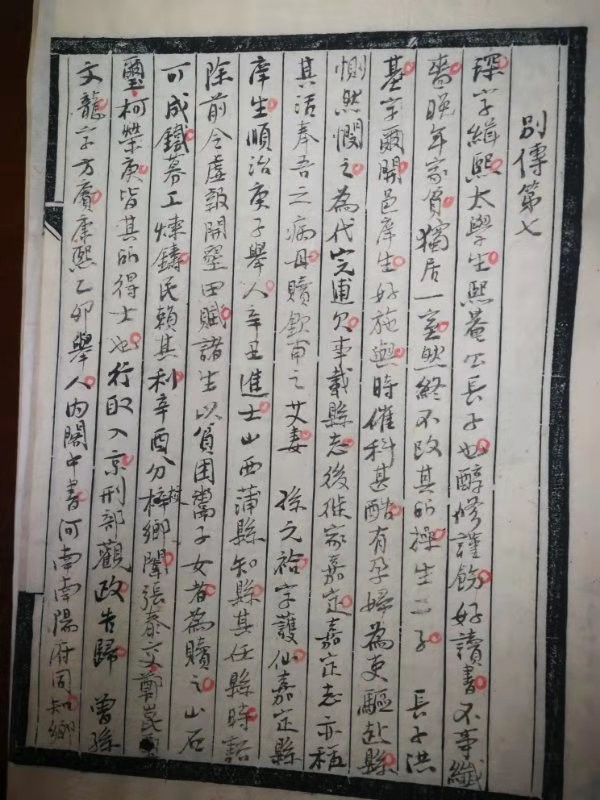 別傳第七
琛字緝熙太學生熙菴公長子也醇修謹飭好讀書不事纖
嗇晚年家貧獨居一室然終不改其所操生二子　長子洪
基字爾開邑庠生好施與時催科甚酷有孕婦為吏驅赴縣
惻然憫之為代完逋欠事載縣志後徙家嘉定嘉定志亦稱
其活奉吾之病母贖欽甫之艾妻　孫元祫字護仙嘉定縣
庠生順治庚子舉人辛丑進士山西蒲縣知縣其任縣時詔
除前令虛報開墾田賦諸生以貧困鬻子女者為贖之山石
可成鐵募工煉鑄民賴其利辛酉分校梓鄉闈張泰交鄭崑
璽柯榮庚皆其所得士也行取入京刑部觀政告歸　曾孫
文龍字方賓康熙乙卯舉人內閣中書河南南陽府同知鄉